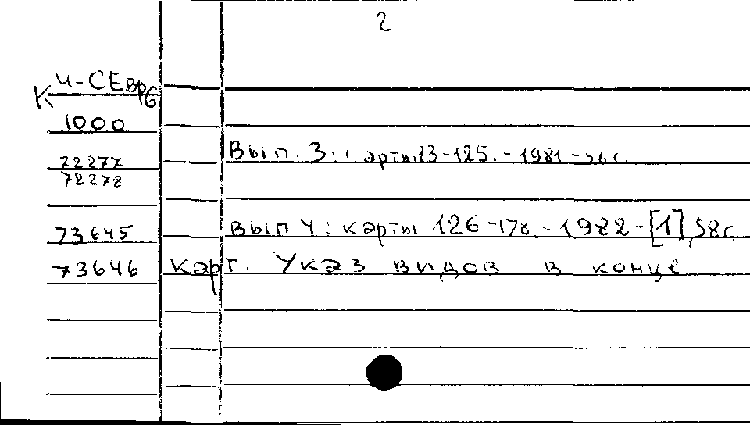 2
Ч-СЕвр6
К
1000
Вып. 3: карты 73-125. - 1981 - 56 с.
72277
72278
Вып 4: карты 126-178. - 1982 - [1], 58 с.
73645
73646 карт. Указ видов в конце